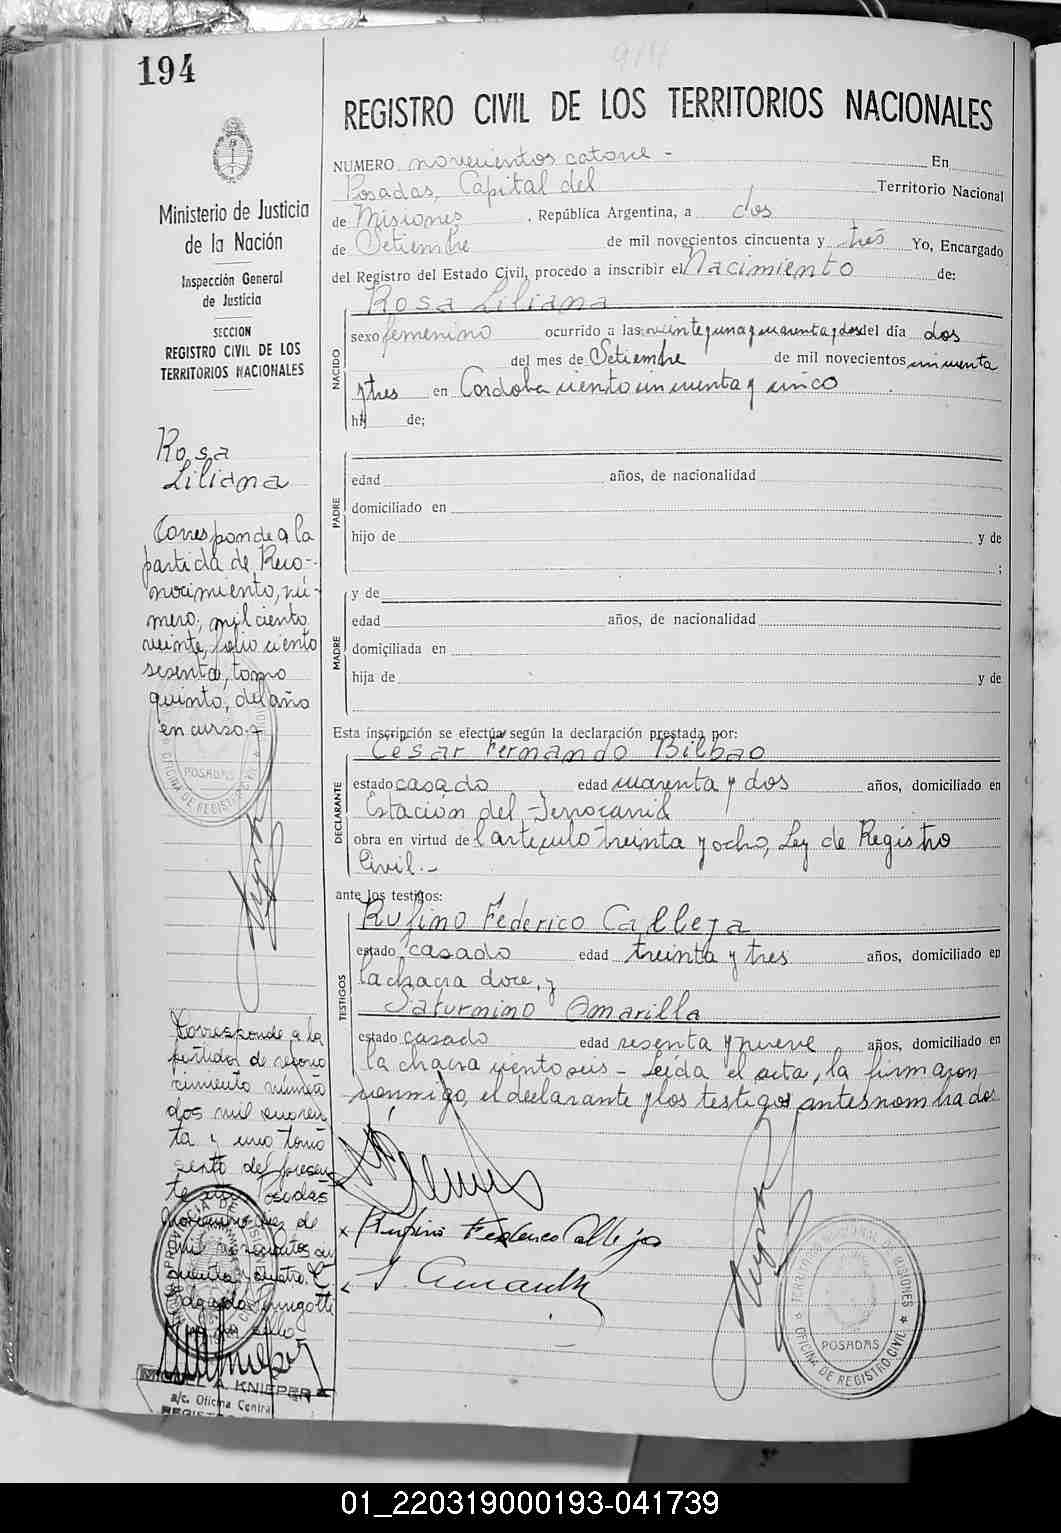 914
194
REGISTRO CIVIL DE LOS TERRITORIOS NACIONALES
Ministerio de Justicia
de la Nación
Inspección General
de Justicia
SECCION
REGISTRO CIVIL DE LOS
TERRITORIOS NACIONALES
Rosa
Liliana
Corresponde a la
partida de Reco-
nocimiento, nú-
mero, mil ciento
veinte, folio ciento
sesenta, tomo
quinto, del año
en curso.
POSADAS
OFICINA DE REGISTRO CIVIL
Corresponde a la
partida de recono
cimiento número
dos mil cuaren
ta y uno tomo
del presen
te
Posadas
de
mil novecientos cin
cuenta y cuatro.
A. KNIEPER
a/c. Oficina Central
NUMERO novecientos catorce - En
Posadas, Capital del Territorio Nacional
de Misiones, República Argentina, a dos
de Setiembre de mil novecientos cincuenta y tres Yo, Encargado
del Registro del Estado Civil, procedo a inscribir el Nacimiento de:
Rosa Liliana
NACIDO
sexo femenino ocurrido a las veinte y una y cuarenta y dos del día dos
del mes de Setiembre de mil novecientos cincuenta
y tres en Cordoba ciento cincuenta y cinco
hij de;
PADRE
edad años, de nacionalidad
domiciliado en
hijo de y de
;
MADRE
y de
edad años, de nacionalidad
domiciliada en
hija de y de
Esta inscripción se efectúa según la declaración prestada por:
César Fernando Bilbao
DECLARANTE
estado casado edad cuarenta y dos años, domiciliado en
Estación del Ferrocarril
obra en virtud de l artículo treinta y ocho, Ley de Registro
Civil.-
ante los testigos:
Rufino Féderico Calleja
TESTIGOS
estado casado edad treinta y tres años, domiciliado en
la chacra doce, y
Saturnino Amarilla
estado casado edad sesenta y nueve años, domiciliado en
la chacra ciento seis - Leída el acta, la firmaron
conmigo, el declarante y los testigos antes nombrados
Rufino Federico Calleja
TERRITORIO NACIONAL DE MISIONES
POSADAS
OFICINA DE REGISTRO CIVIL
01_220319000193-041739